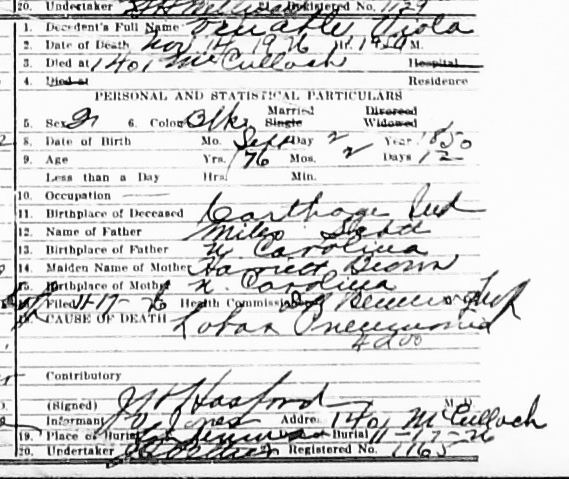 20. Undertaker Registered No. 1129
1. Decedent's Full Name Venable Viola
2. Date of Death Nov 14, 1926 Hr. M.
3. Died at 1401 McCulloch Hospital
4. Died at Residence
PERSONAL AND STATISTICAL PARTICULARS
Married Divorced
5. Sex 6. Color Blk Single Widowed
8. Date of Birth Mo. Sept Day 2 Year 1850
9. Age Yrs. 76 Mos. 2 Days 12
Less than a Day Hrs. Min.
10. Occupation
11. Birthplace of Deceased Carthage Ind
12. Name of Father Miles
13. Birthplace of Father N. Carolina
14. Maiden Name of Mother Harriett Brown
15. Birthplace of Mother N. Carolina
Filed 11-17-26 Health Commiss
CAUSE OF DEATH Lobar Pneumonia
4 d
Contributory
(Signed) M. D.
Informant Jones Addre: 1401 McCulloch
19. Place of Burial Burial 11-17-26
20. Undertaker Registered No. 1165